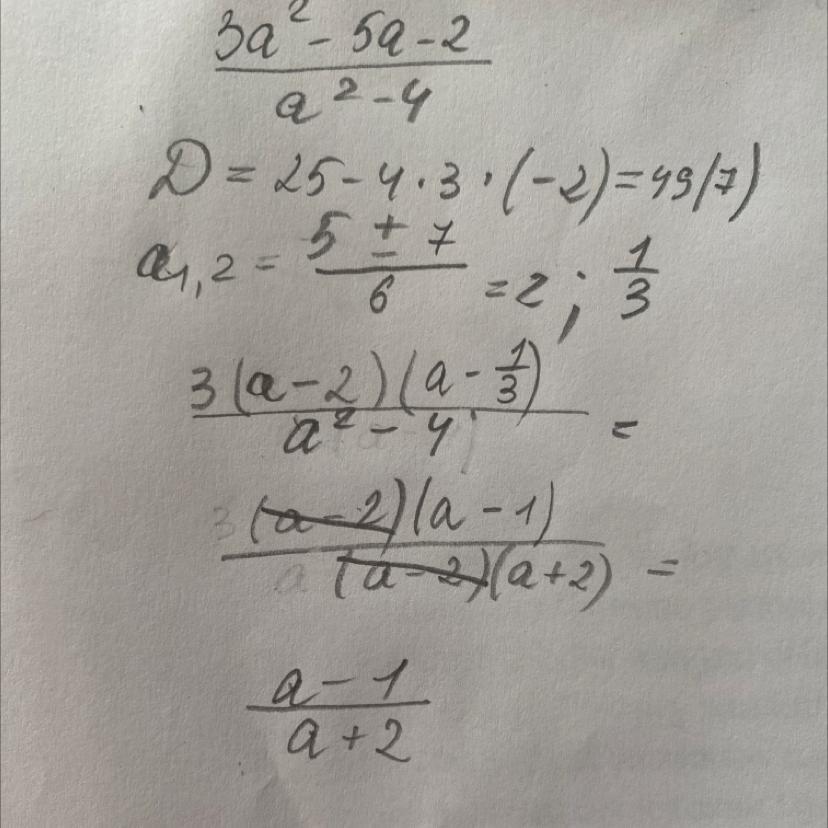 3a² - 5a - 2
a² - 4
D = 25 - 4 · 3 · (-2) = 49 (7)
a₁,₂ = (5 ± 7)/6 = 2 ; 1/3
3(a - 2)(a - 1/3)
a² - 4 =
3(a - 2)(a - 1)
a (a - 2)(a + 2) =
a - 1
a + 2